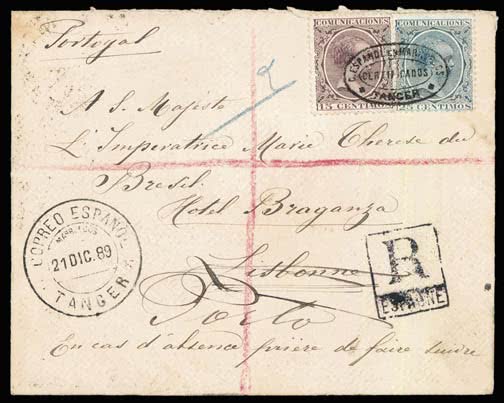 Portogal
COMUNICACIONES COMUNICACIONES
C. ESPAÑOL EN MARRUECOS
CERTIFICADOS
TANGER
15 CENTIMOS 25 CENTIMOS
2
A S. Majesta
L'Imperatrice Marie Therese du
Bresil.
Hotel Braganza
Lisbonne
Porto
En cas d'absence prière de faire suivre
CORREO ESPAÑOL
21 DIC. 89
TANGER
R
ESPAGNE